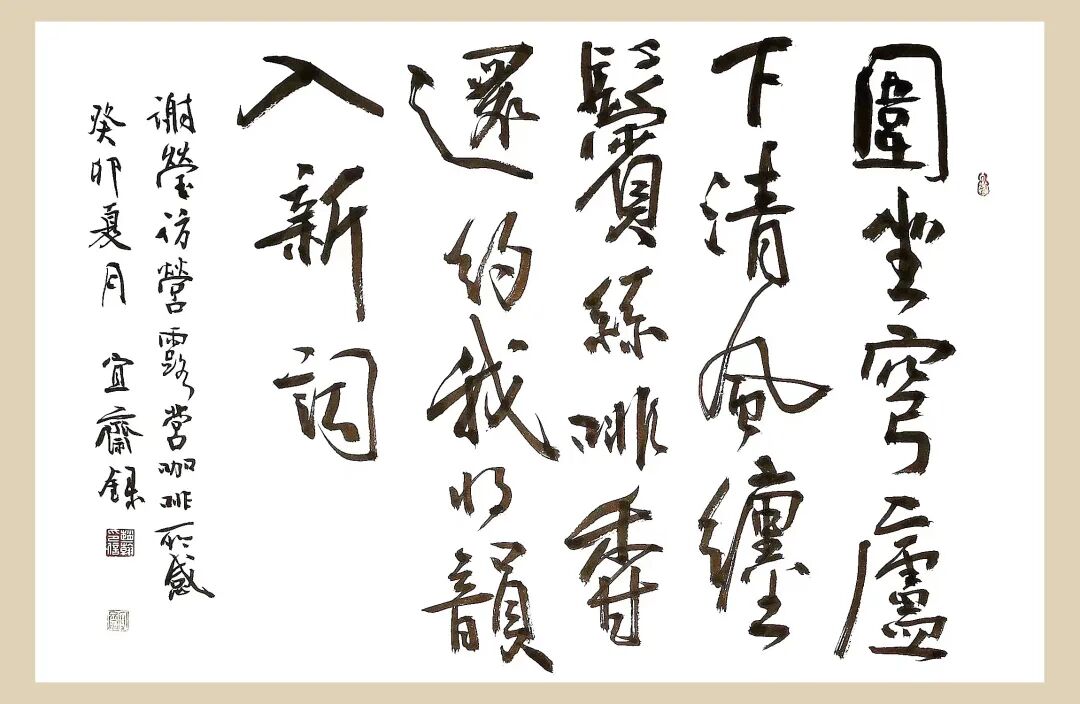 圍坐穹廬
下清風纏
鬢絲啡香
還約我將韻
入新詞
謝瑩訪營露營咖啡所感
癸卯夏月 宜齋錄